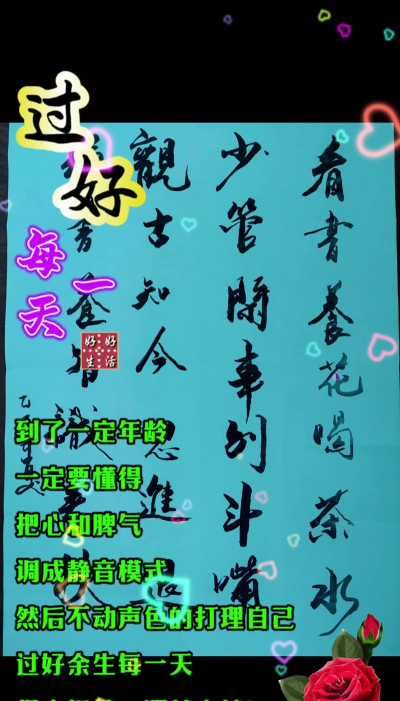 过好
每一天
好好
生活
看書養花喝茶水
少管閑事别斗嘴
觀古知今思進
到了一定年龄
一定要懂得
把心和脾气
调成静音模式
然后不动声色的打理自己
过好余生每一天